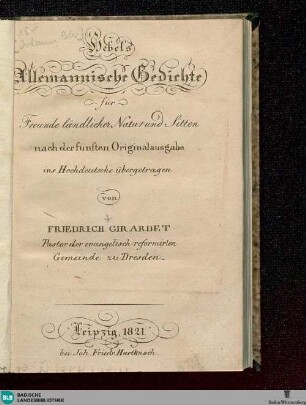 Hebels
Allemannische Gedichte
für
Freunde ländlicher Natur und Sitten
nach der fünften Originalausgabe
ins Hochdeutsche übergetragen
von
FRIEDRICH GIRARDET
Pastor der evangelisch-reformirten
Gemeinde zu Dresden.
Leipzig, 1821
bei Joh. Friedr. Hartknoch
BLB
BADISCHE
LANDESBIBLIOTHEK
Baden-Württemberg